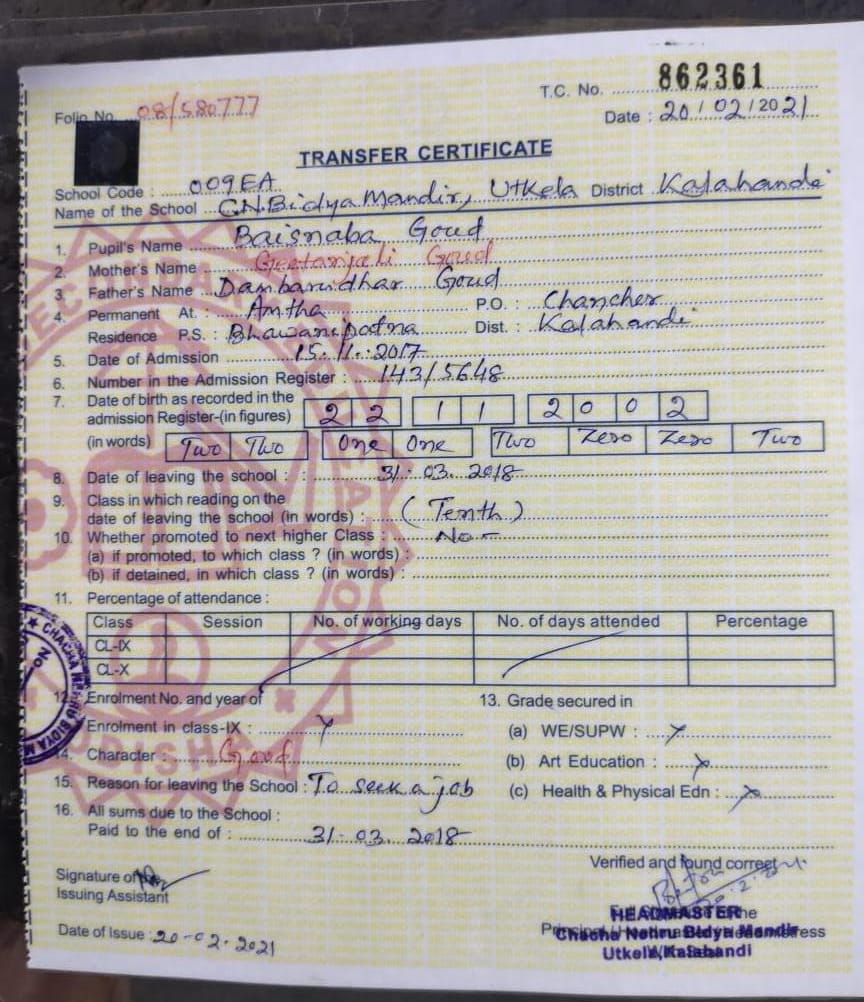 T.C. No. 862361
Folio No. 08/580777
Date : 20/02/2021
TRANSFER CERTIFICATE
School Code : 009EA
Name of the School C.N.Bidya Mandir, Utkela District Kalahandi
1. Pupil's Name Baisnaba Goud
2. Mother's Name Geetanjali Goud
3. Father's Name Dambarudhar Goud
4. Permanent At. : Amtha P.O. : Chancher
Residence P.S. : Bhawanipatna Dist. : Kalahandi
5. Date of Admission 15.11.2017
6. Number in the Admission Register : 143/5648
7. Date of birth as recorded in the
admission Register-(in figures) 2 2 1 1 2 0 0 2
(in words) Two Two One One Two Zero Zero Two
8. Date of leaving the school : : 31-03.2018
9. Class in which reading on the
date of leaving the school (in words) : (Tenth)
10. Whether promoted to next higher Class : No -
(a) if promoted, to which class ? (in words) :
(b) if detained, in which class ? (in words) :
11. Percentage of attendance :
Class Session No. of working days No. of days attended Percentage
CL-IX
CL-X
12. Enrolment No. and year of 13. Grade secured in
Enrolment in class-IX : (a) WE/SUPW :
14. Character : Good (b) Art Education :
15. Reason for leaving the School : To seek a job (c) Health & Physical Edn :
16. All sums due to the School :
Paid to the end of : 31-03.2018
Verified and found correct
Signature of
Issuing Assistant
HEADMASTER
Chacha Nehru Bidya Mandir
Utkela, Kalahandi
Date of Issue : 20-02-2021